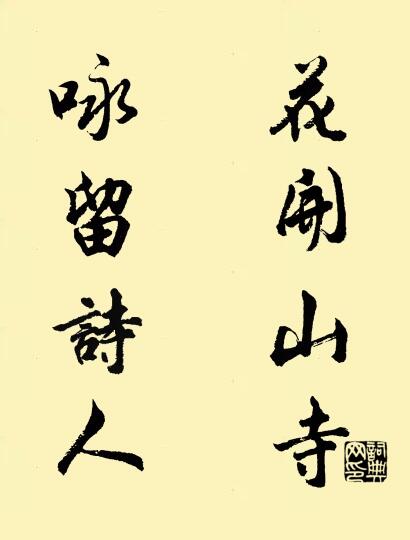 花開山寺
咏留詩人
詞典網印